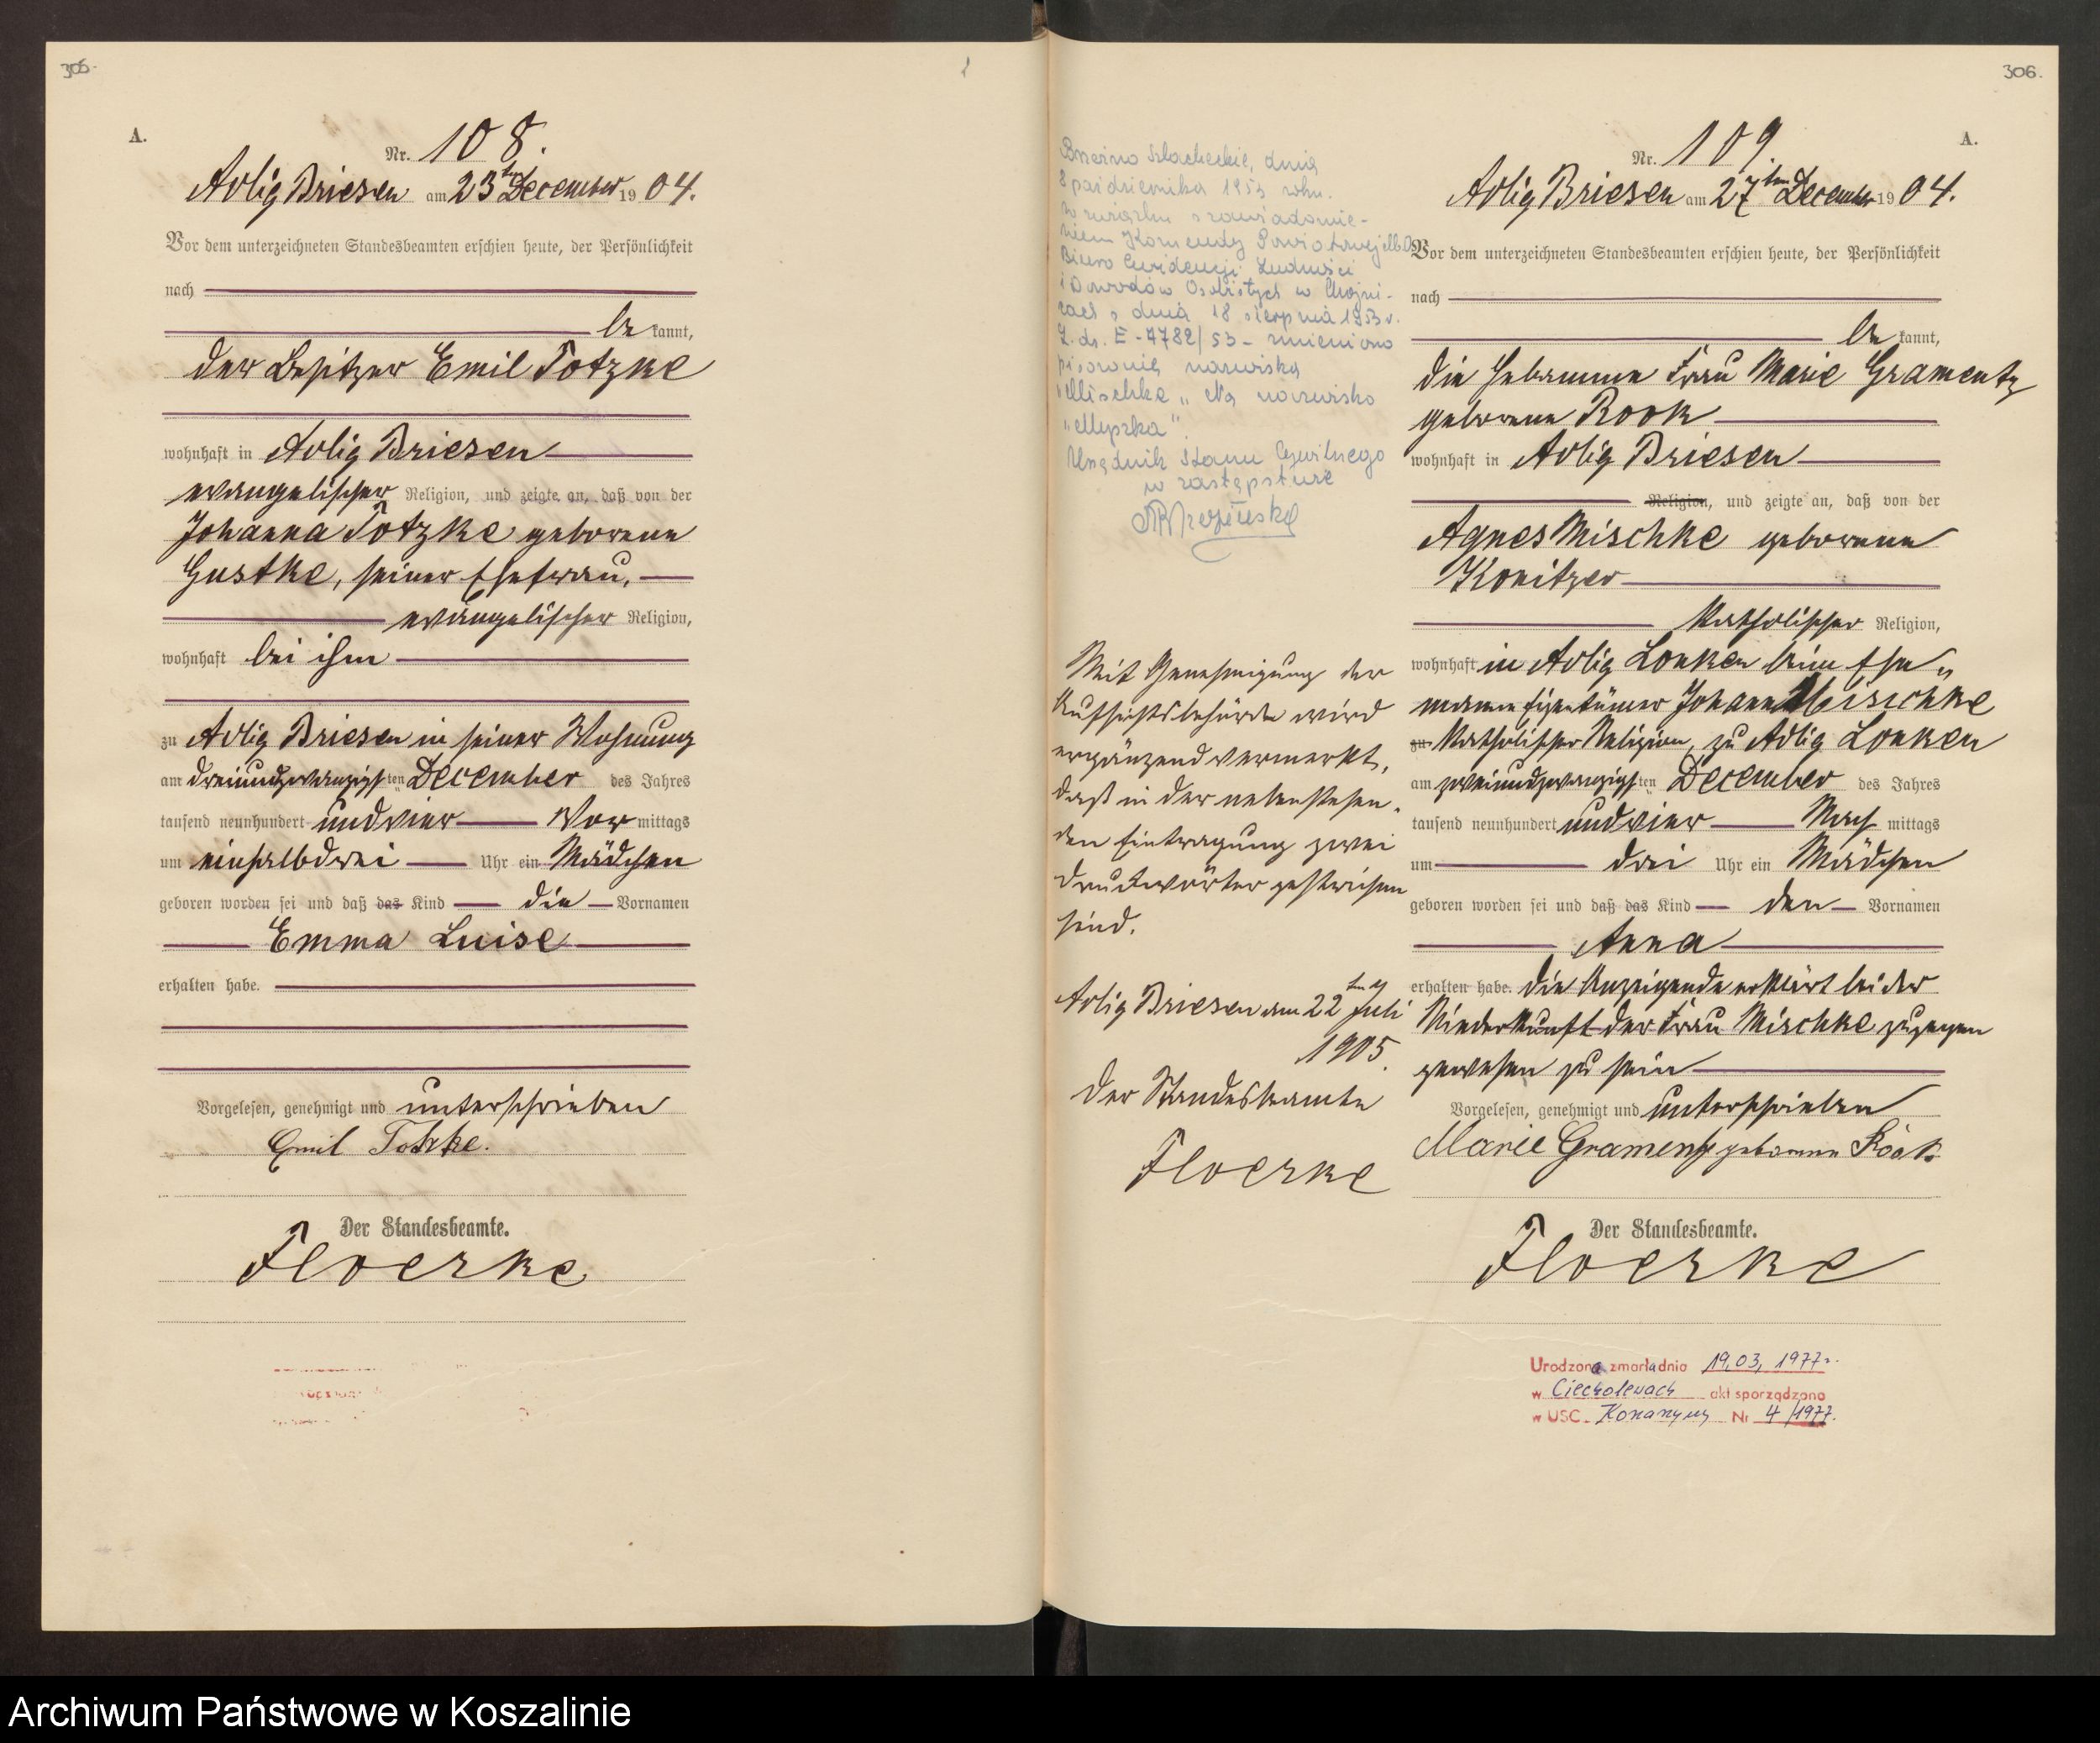 305.
A.
Nr. 108.
Adlig Briesen am 23ten December 1904.
Vor dem unterzeichneten Standesbeamten erschien heute, der Persönlichkeit
nach
be kannt,
der Besitzer Emil Totzke
wohnhaft in Adlig Briesen
evangelischer Religion, und zeigte an, daß von der
Johanna Totzke geborene
Gustke, seiner Ehefrau,
evangelischer Religion,
wohnhaft bei ihm
zu Adlig Briesen in seiner Wohnung
am dreiundzwanzigsten December des Jahres
tausend neunhundert und vier Vor mittags
um einhalbdrei Uhr ein Mädchen
geboren worden sei und daß das Kind die Vornamen
Emma Luise
erhalten habe.
Vorgelesen, genehmigt und unterschrieben
Emil Totzke.
Der Standesbeamte.
Floerke
306.
A.
Brzeźno Szlacheckie, dnia
8 października 1953 roku.
W związku z zawiadomie-
niem Komendy Powiatowej M.O.
Biuro Ewidencji Ludności
i Dowodów Osobistych w Chojni-
cach z dnia 18 sierpnia 1953 r.
L. dz. E-4782/53 - zmieniono
pisownię nazwiska
"Mischke" na nazwisko
"Myszka".
Urzędnik Stanu Cywilnego
w zastępstwie
Mit Genehmigung der
Aufsichtsbehörde wird
ergänzend vermerkt,
daß in der nebenstehen-
den Eintragung zwei
Druckwörter gestrichen
sind.
Adlig Briesen am 22ten Juli
1905.
Der Standesbeamte
Floerke
Nr. 109.
Adlig Briesen am 27ten December 1904.
Vor dem unterzeichneten Standesbeamten erschien heute, der Persönlichkeit
nach
be kannt,
die Hebamme Frau Marie Gramentz
geborene Rook
wohnhaft in Adlig Briesen
Religion, und zeigte an, daß von der
Agnes Mischke geborene
Konitzer
katholischer Religion,
wohnhaft in Adlig Lonken beim Ehe-
manne Eigentümer Johann Mischke
zu katholischer Religion, zu Adlig Lonken
am zweiundzwanzigsten December des Jahres
tausend neunhundert und vier Nach mittags
um drei Uhr ein Mädchen
geboren worden sei und daß das Kind den Vornamen
Anna
erhalten habe. Die Anzeigende erklärt bei der
Niederkunft der Frau Mischke zugegen
gewesen zu sein
Vorgelesen, genehmigt und unterschrieben
Marie Gramentz geborene Rook
Der Standesbeamte.
Floerke
Urodzona zmarła dnia 19.03. 1977 r.
w Ciecholewach akt sporządzono
w USC Konarzyny Nr 4/1977.
Archiwum Państwowe w Koszalinie